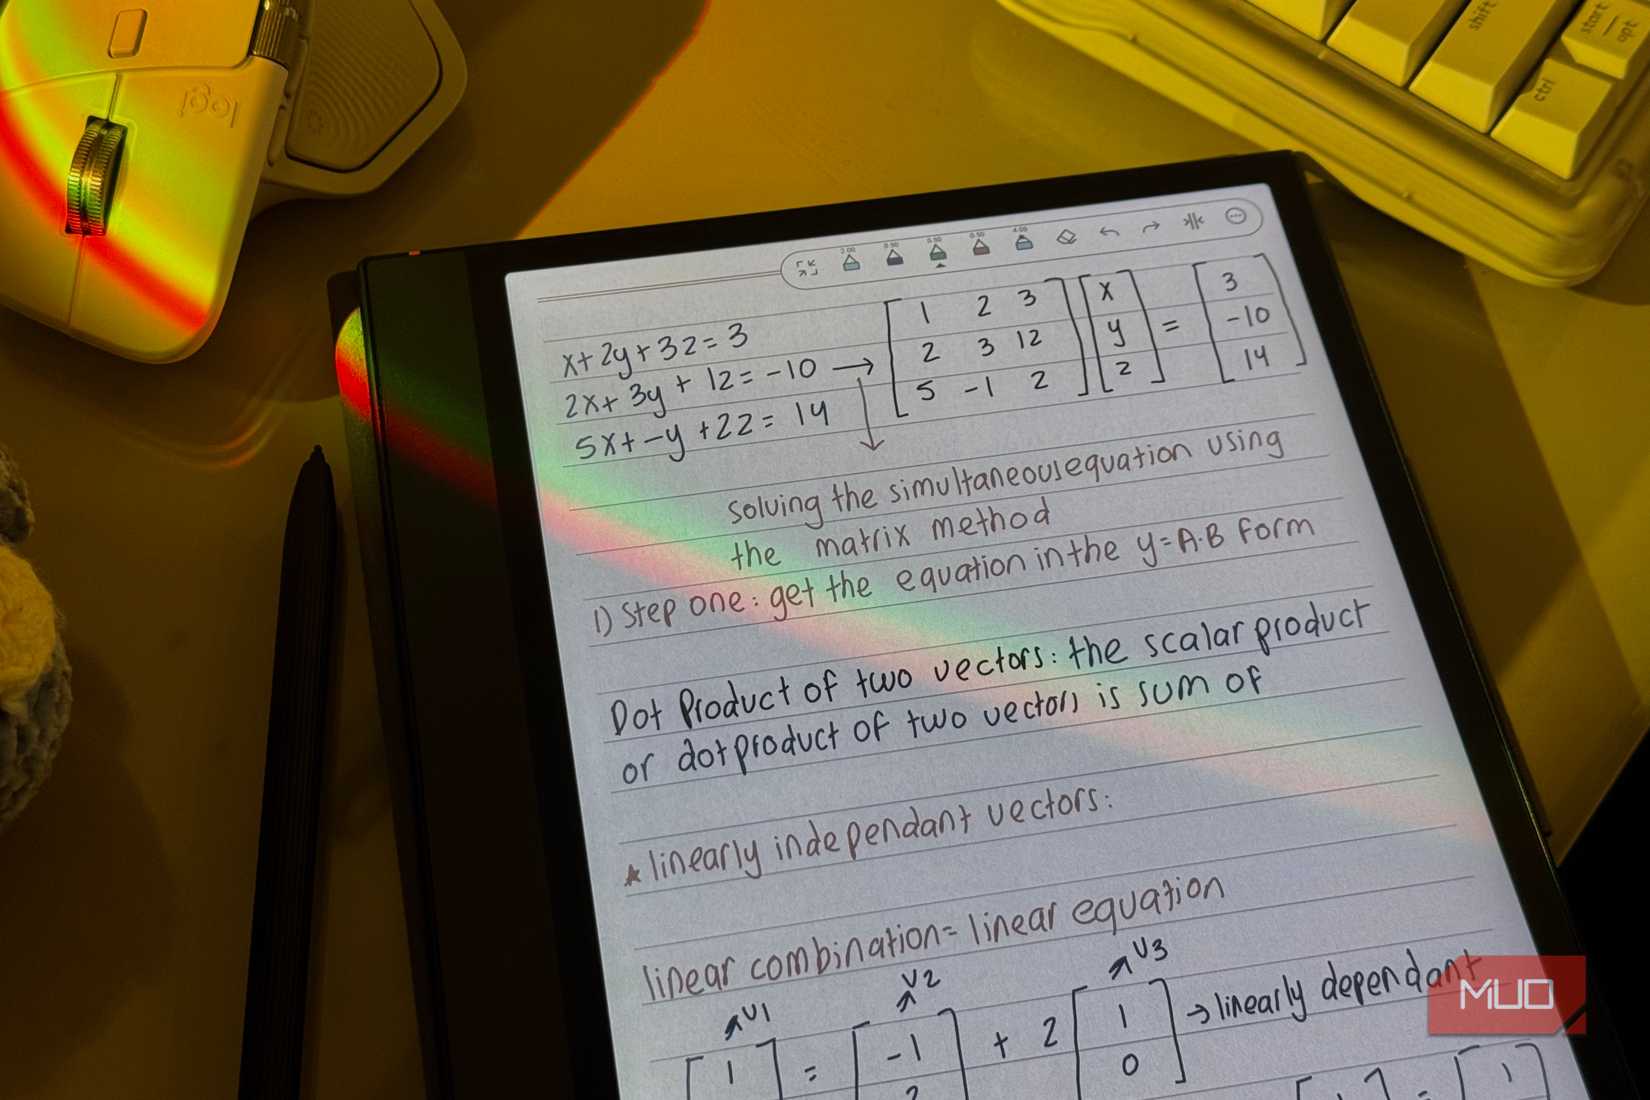 logi
shift
start
opt
ctrl
2.00 0.50 0.50 0.50 4.00
x+2y+3z=3
2x+3y+12=-10 →
5x+-y+2z=14
[1 2 3] [x] = [3]
[2 3 12] [y] [-10]
[5 -1 2] [z] [14]
solving the simultaneous equation using
the matrix method
1) Step one: get the equation in the y=A·B form
Dot Product of two vectors: the scalar product
or dot product of two vectors is sum of
* linearly independant vectors:
linear combination= linear equation
v1 v2 v3
[1] = [-1] + 2 [1] → linearly dependant
0
[1] = [1]
MUO